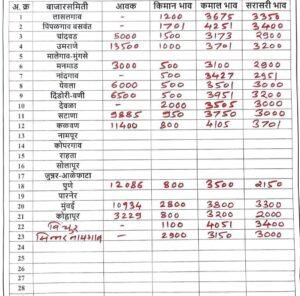 अ. क्र बाजारसमिती आवक किमान भाव कमाल भाव सरासरी भाव
1 लासलगाव - 1200 3675 3350
2 पिंपळगाव बसवंत - 1701 4251 3400
3 चांदवड 5000 1500 3173 2900
4 उमराणे 13500 1000 3701 3200
5 मालेगाव-मुंगसे
6 मनमाड 3000 500 3100 2900
7 नांदगाव - 500 3427 2951
8 येवला 6000 500 3501 3000
9 दिंडोरी-वणी 6500 500 3951 3200
10 देवळा - 2000 3505 3000
11 सटाणा 9885 950 3750 3000
12 कळवण 11400 800 4105 3701
13 नामपूर
14 कोपरगाव
15 राहता
16 सोलापूर
17 जुन्नर-आळेफाटा
18 पुणे 12086 800 3500 2150
19 पारनेर
20 मुंबई 10934 2800 3800 3300
21 कोल्हापूर 3229 800 3200 2000
22 विंचूर - 1100 4051 3400
23 सिन्नर नायगाव - 2900 3150 3000
24
25
26
27
28